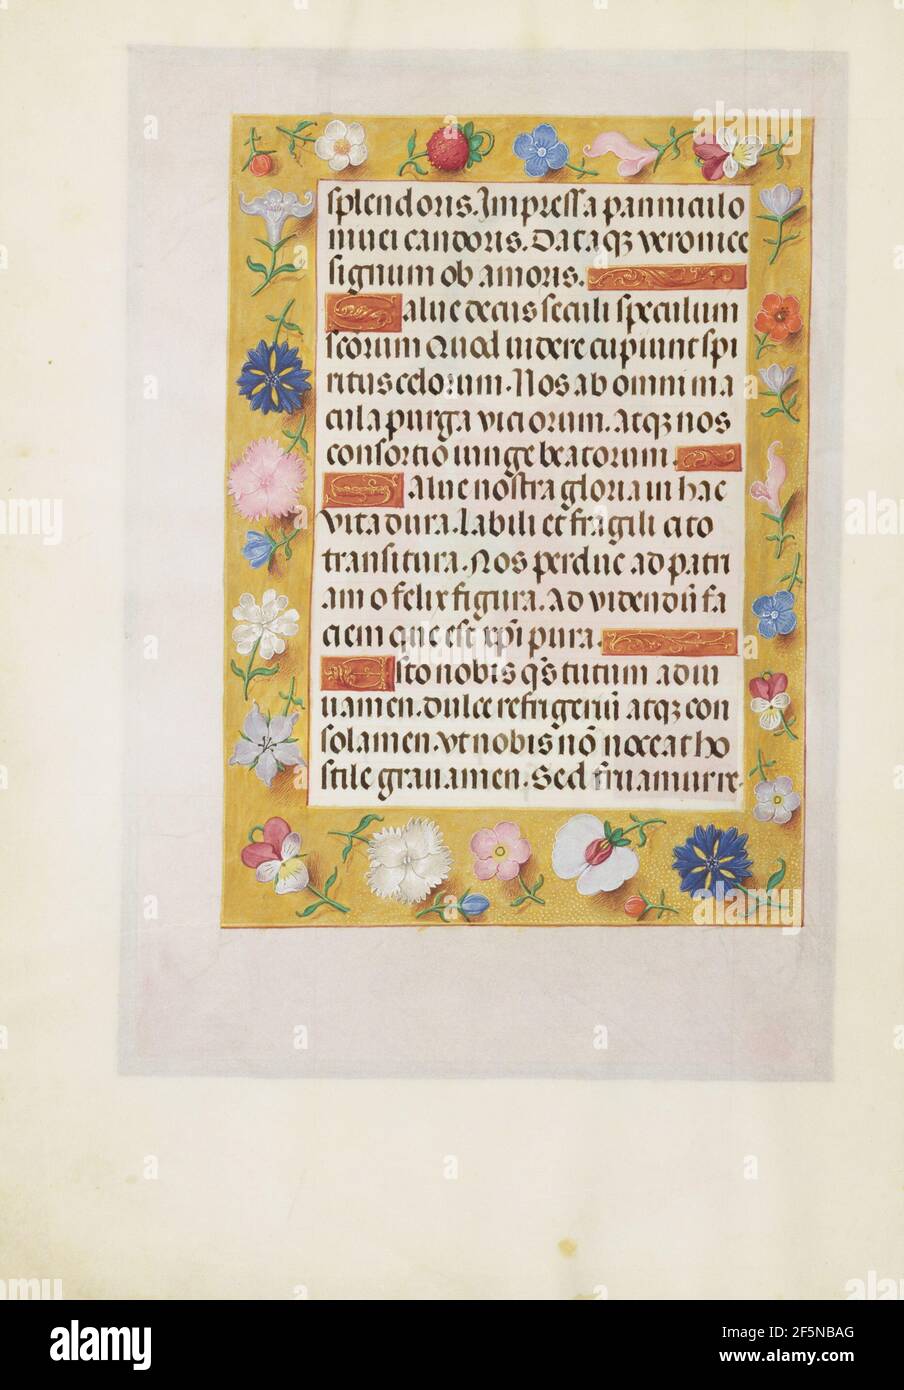 splendoris. Impressa panniculo
nivei candoris. Dataqz veronice
signum ob amoris.
Salve decus seculi speculum
scorum Quod videre cupiunt spi
ritus celorum. Nos ab omni ma
cula purga viciorum. Atqz nos
consortio iunge beatorum.
Salve nostra gloria in hac
vita dura. Labili et fragili cito
transitura. Nos perduc ad patri
am o felix figura. Ad videndū fa
ciem que est xpi pura.
Esto nobis qs tutum adiu
vamen. Dulce refrigeriū atqz con
solamen. Vt nobis nō noceat ho
stile gravamen. Sed fruamur re-
alamy
Image ID: 2F5NBAG
www.alamy.com